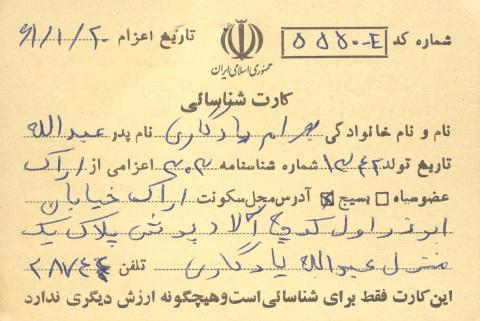 شماره کد ۵۵۲۰-E تاریخ اعزام ۶۱/۱/۲۰
جمهوری اسلامی ایران
کارت شناسائی
نام و نام خانوادگی بهرام یادگاری نام پدر عبدالله
تاریخ تولد ۱۳۴۲ شماره شناسنامه ۳۰۳ اعزامی از اراک
عضو سپاه بسیج آدرس محل سکونت اراک خیابان
ابوذر اول کوچه پلاک یک
منزل عبدالله یادگاری تلفن
این کارت فقط برای شناسائی است و هیچگونه ارزش دیگری ندارد